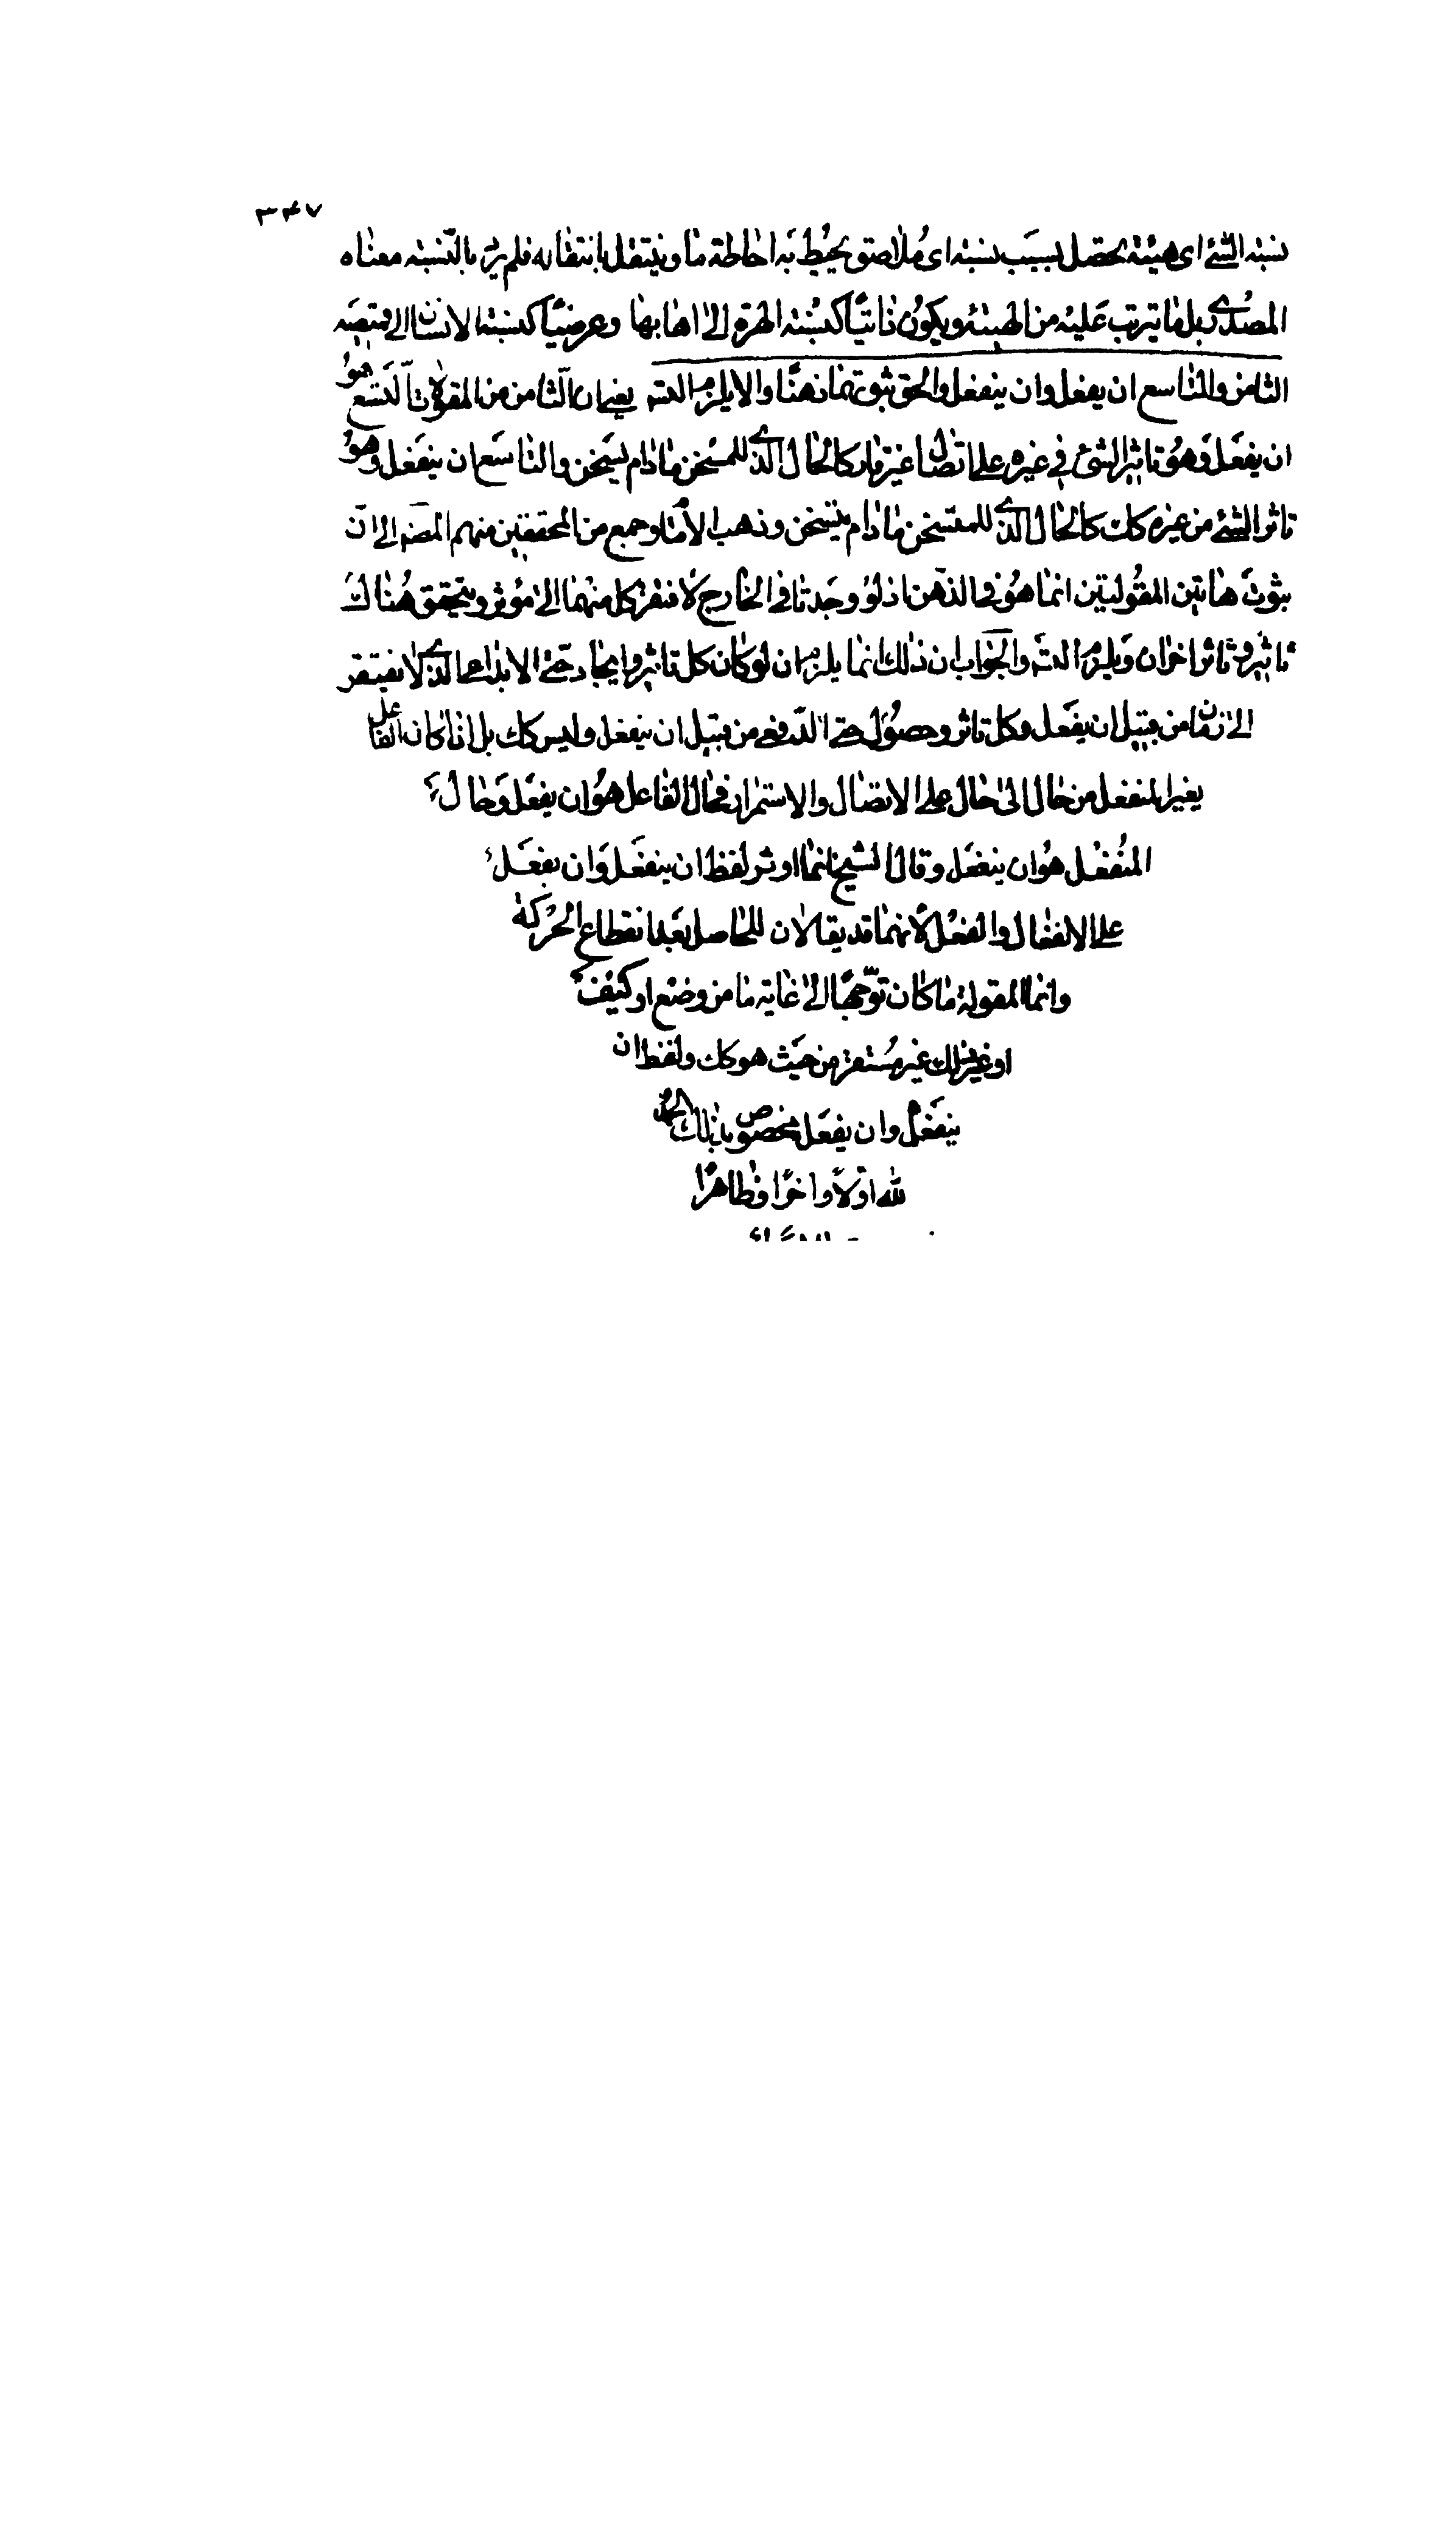 ٣٤٧
نسبة الشئ اى هيئة تحصل بسبب نسبته اى ملاصق يحيط به احاطة ما وينتقل بانتقاله فلم يرد بالنسبة معناه
المصدرى بل ما يترتب عليه من الهيئة ويكون ذاتيّا كنسبة الهرة الى اهابها وعرضيّا كنسبة الانسان الى قميصه
الثامن والتاسع ان يفعل وان ينفعل والحق ثبوتهما ذهنًا والا يلزم التسه يعنى ان الثامن من المقولات التسع هو
ان يفعل وهو تاثير الشئ فى غيره على اتصال غير قار كالحال الذى للمسخن ما دام يسخن والتاسع ان ينفعل وهو
تاثر الشئ من غيره كك كالحال الذى للمتسخن ما دام يتسخن وذهب الامام وجمع من المحققين منهم المصه الى انّ
ثبوت هاتين المقولتين انما هو فى الذهن اذ لو وجدتا فى الخارج لافتقر كل منهما الى مؤثر ويتحقق هناك
تاثير وتاثر اخران ويلزم التسه والجواب ان ذلك انما يلزم ان لو كان كل تاثير وايجاد حتى الابداعى الذى لا يفتقر
الى زمان من قبيل ان يفعل وكل تاثر وحصول حتى الدفعى من قبيل ان ينفعل وليس كك بل اذا كان الفاعل
يغير المنفعل من حال الى حال على الاتصال والاستمرار فحال الفاعل هو ان يفعل وحال
المنفعل هو ان ينفعل وقال الشيخ انما اوثر لفظ ان ينفعل وان يفعل
على الانفعال والفعل لانهما قد يقالان للحاصل بعد انقطاع الحركة
وانما المقولة ما كان توجّها الى غاية ما من وضع او كيف
او غير ذلك غير مستقر من حيث هو كك ولفظ ان
ينفعل وان يفعل مخصوص بذلك الحمد
لله اوّلا واخرًا وظاهرًا